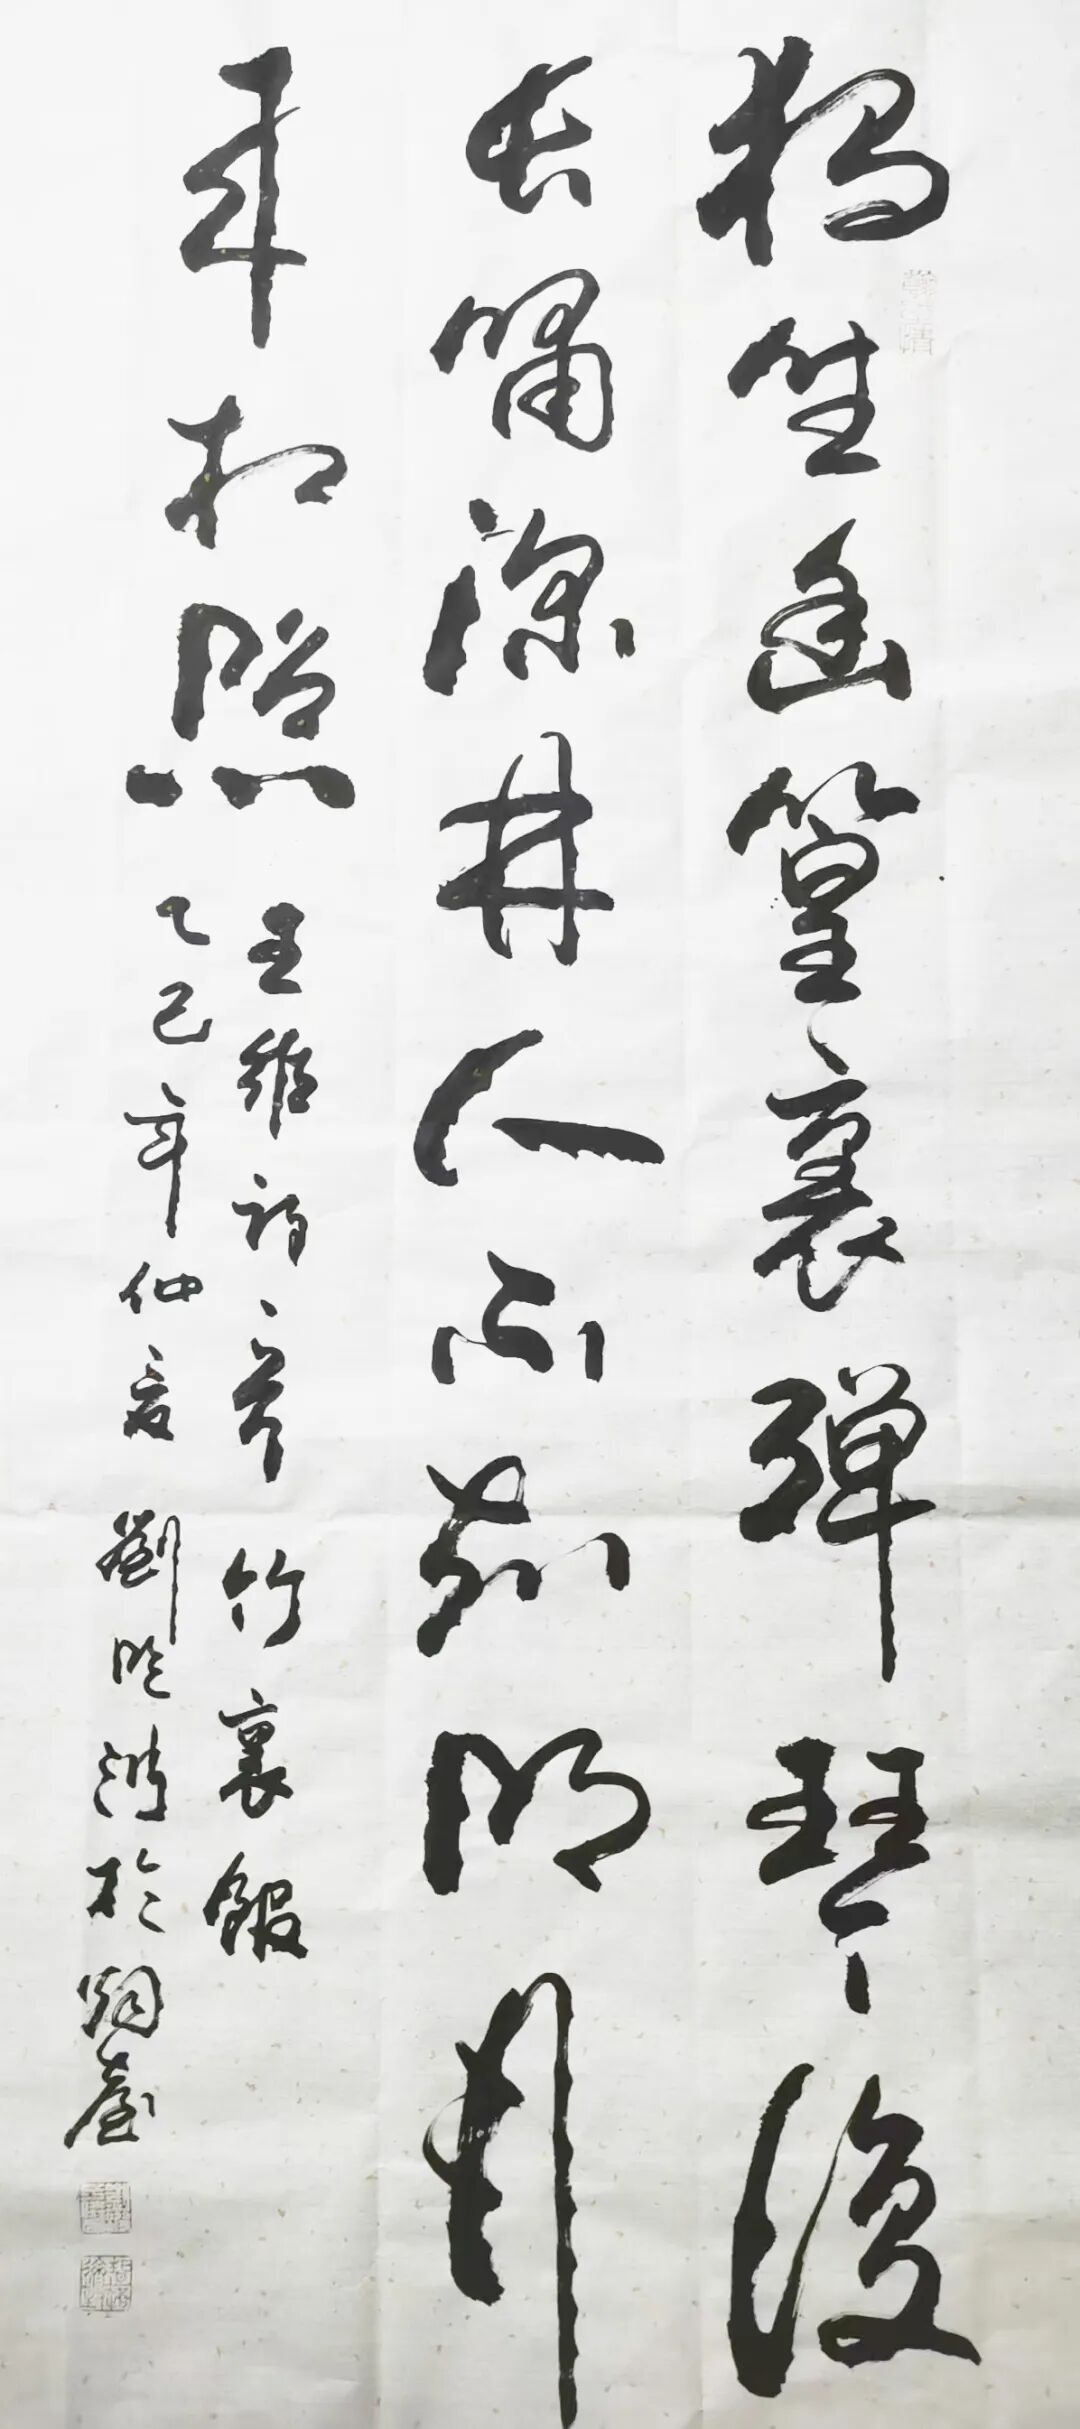 獨坐幽篁裏彈琴復
長嘯深林人不知明月
來相照
王維詩一首 竹裏館
乙巳年仲夏 劉 於烟臺